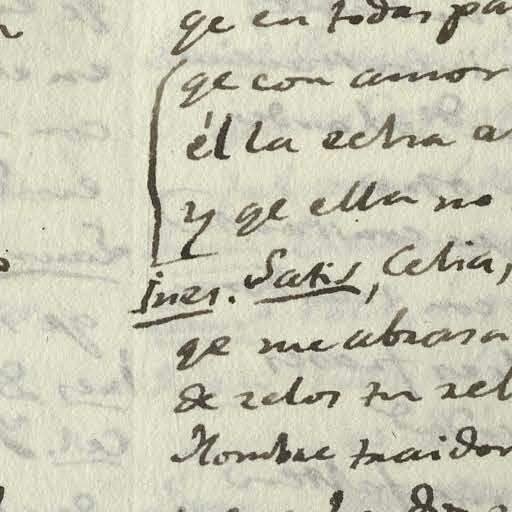 qe en todas pa
qe con amor
él la echa a
y qe ella no
Ines. Satis, Celia,
qe me abrasa
de zelos tu zel
Hombre traidor